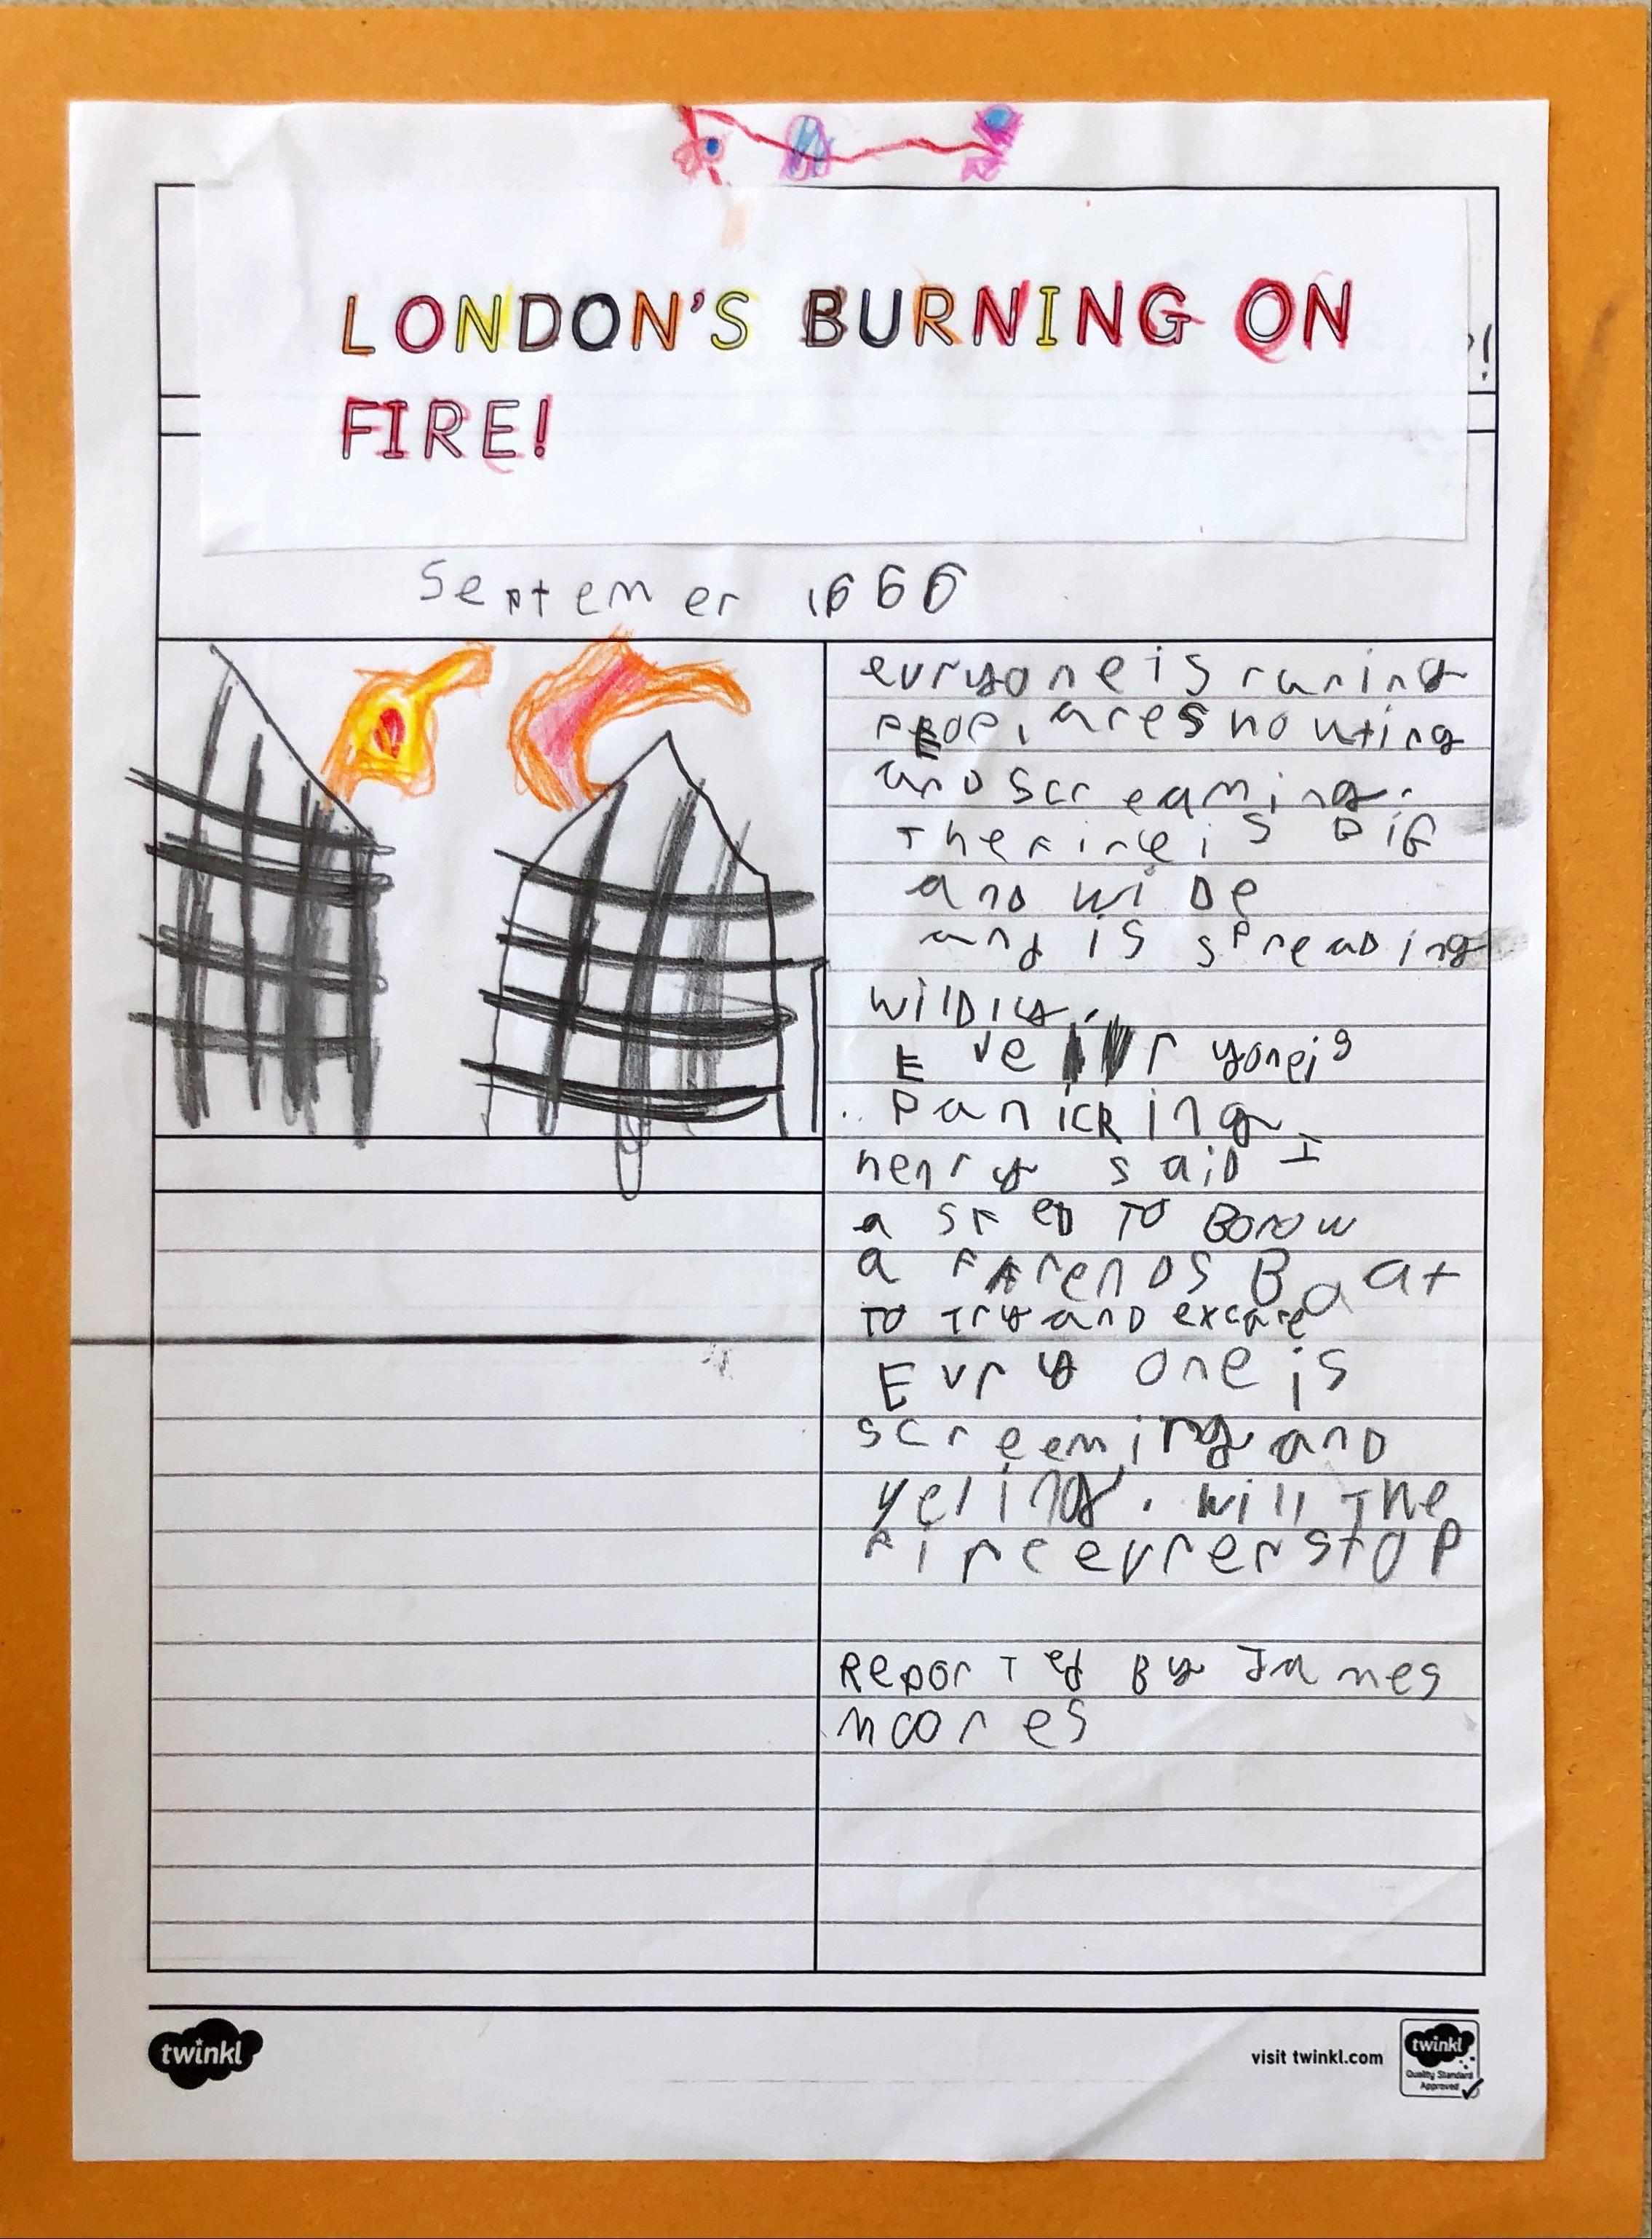 LONDON'S BURNING ON
FIRE!
Septemer 1666
evryone is runing
peopl are shouting
and screaming.
The fire is big
and wide
and is spreading
wildly.
Everyone is
panicking
henry said I
asked to Borow
a frends Boat
to try and excape
Evry one is
screeming and
yeling. will the
fire evrer stop
Reported By James
moores
twinkl
visit twinkl.com
twinkl
Quality Standard
Approved